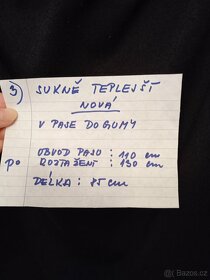 3) SUKNĚ TEPLEJŠÍ
NOVÁ
V PASE DO GUMY
OBVOD PASU: 110 cm
PO ROZTAŽENÍ: 130 cm
DÉLKA: 85 cm
Bazoš.cz